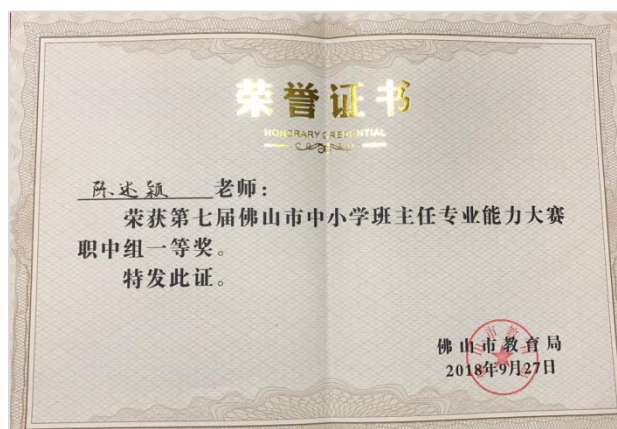 荣誉证书
HONORARY CREDENTIAL
陈述颖 老师：
荣获第七届佛山市中小学班主任专业能力大赛
职中组一等奖。
特发此证。
佛山市教育局
2018年9月27日